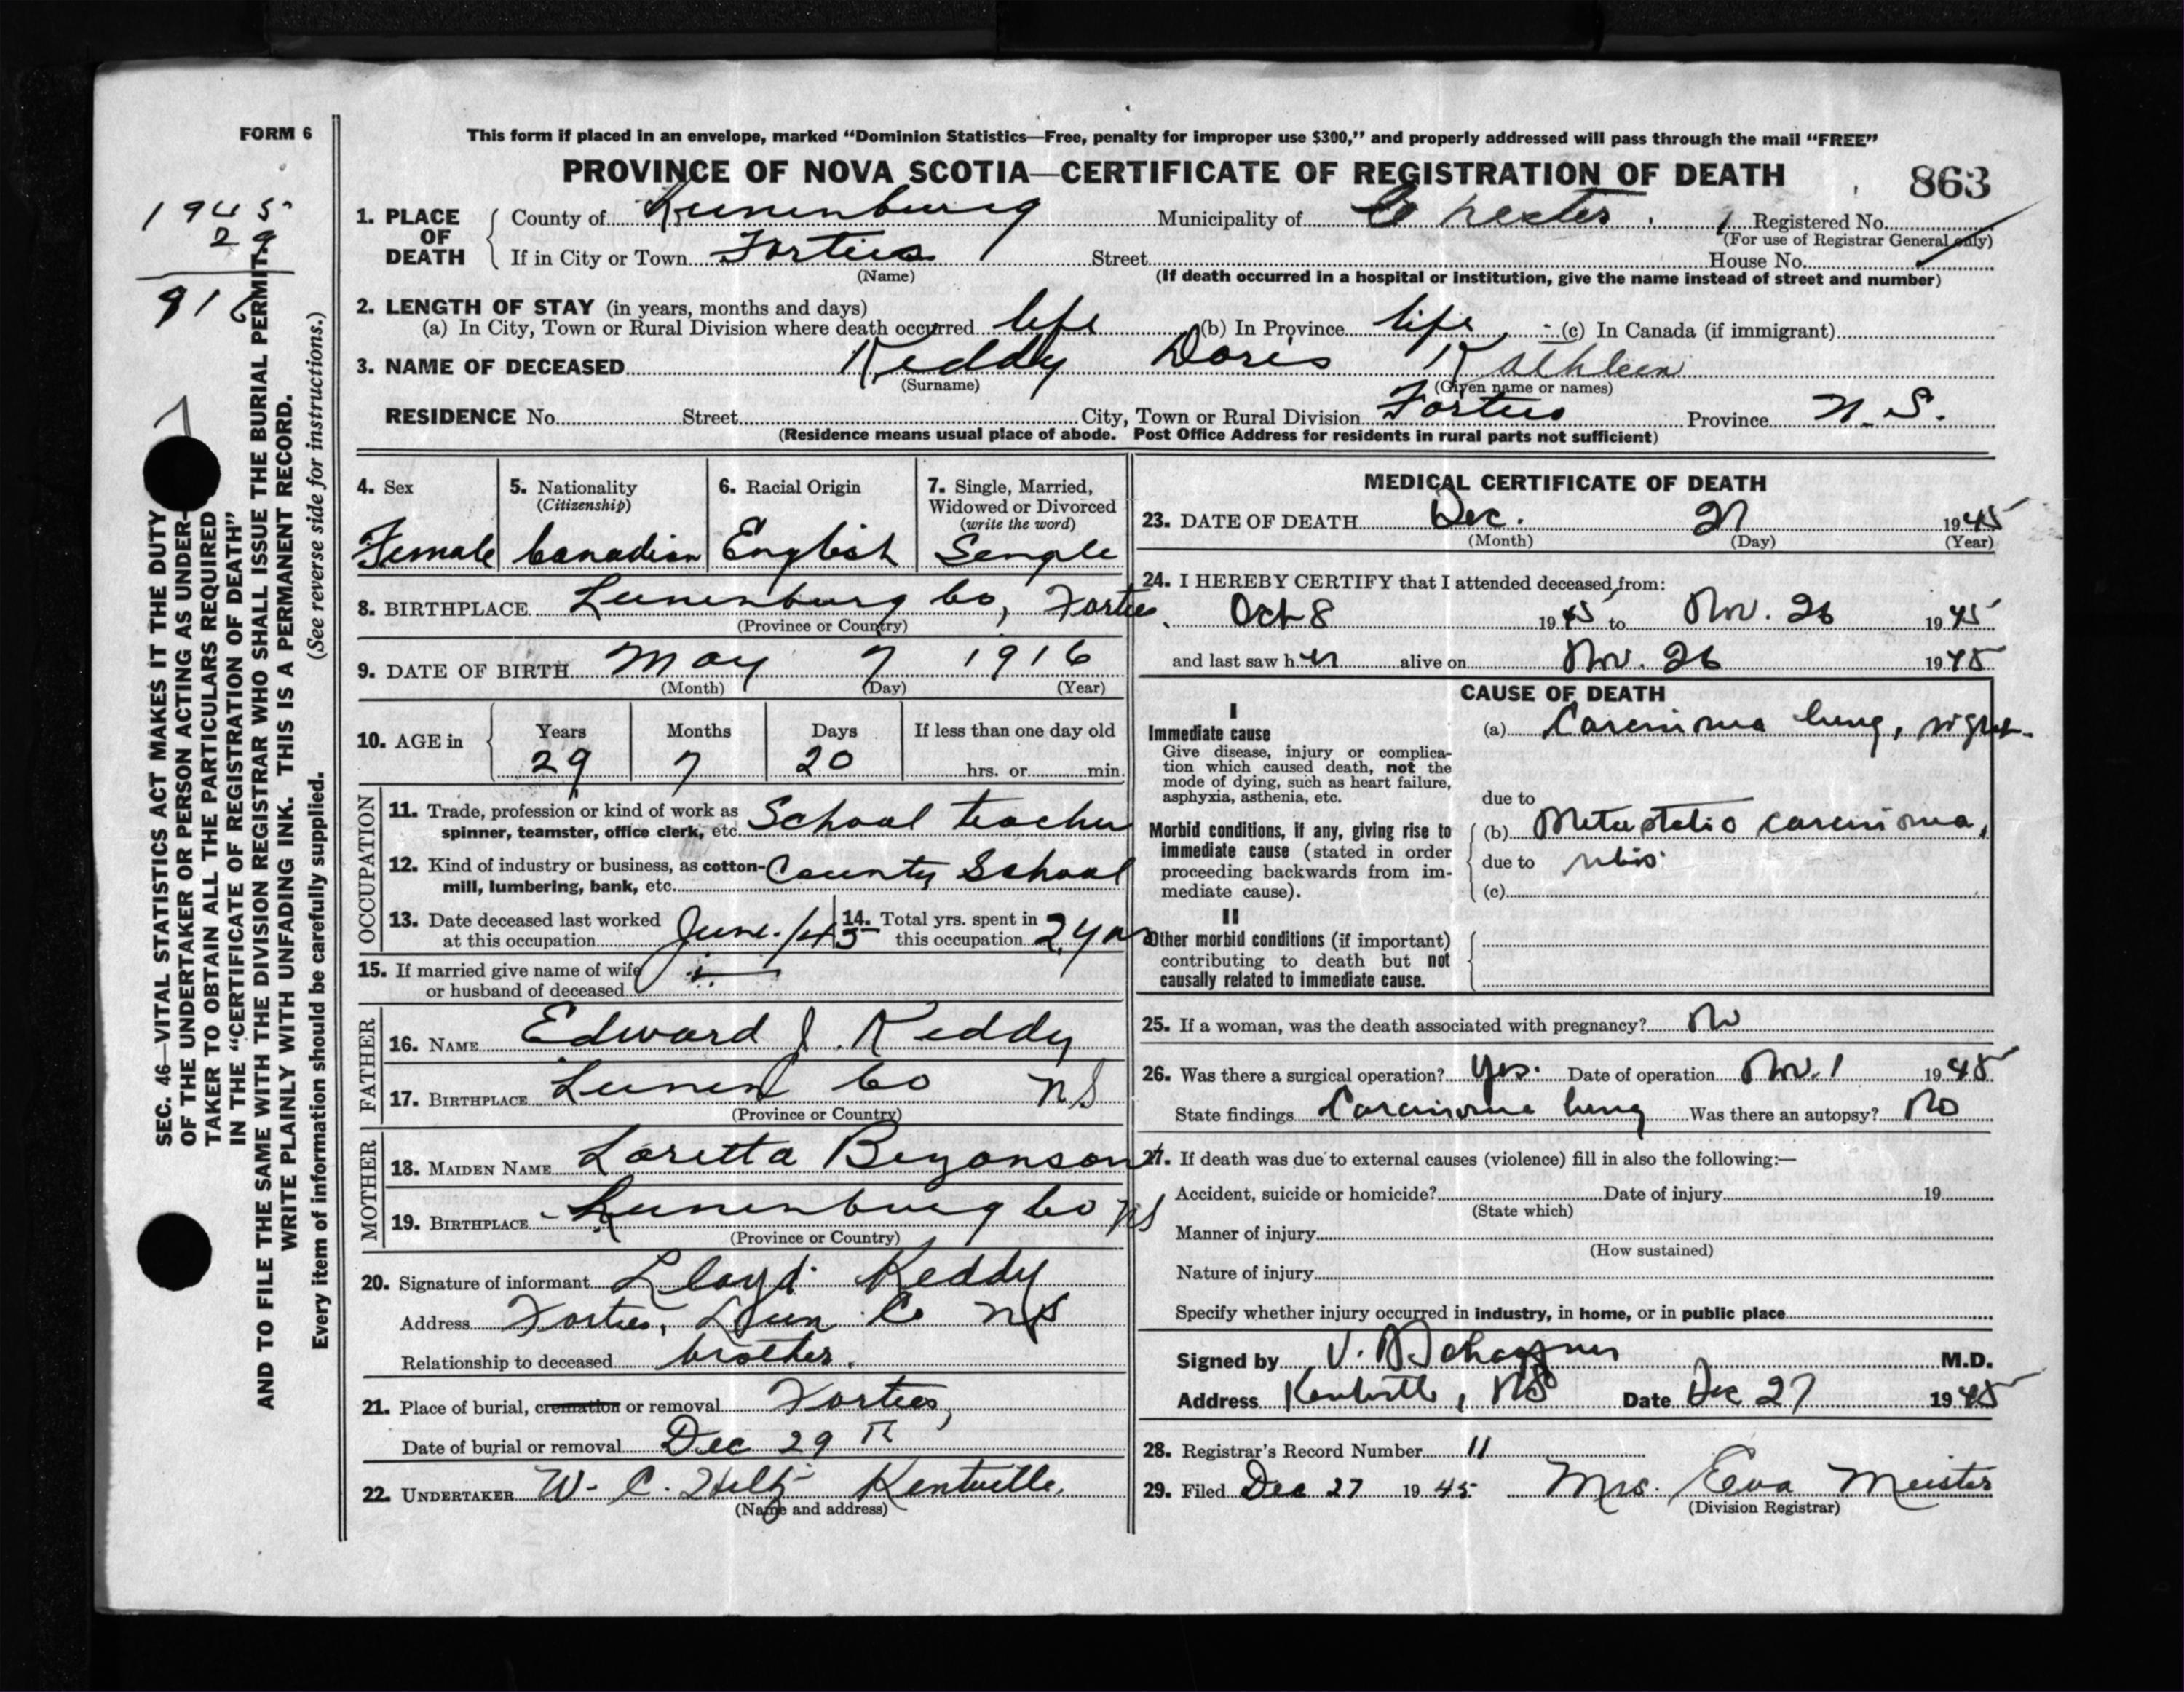 FORM 6
This form if placed in an envelope, marked "Dominion Statistics—Free, penalty for improper use $300," and properly addressed will pass through the mail "FREE"
PROVINCE OF NOVA SCOTIA—CERTIFICATE OF REGISTRATION OF DEATH
863
1945
29
916
SEC. 46—VITAL STATISTICS ACT MAKES IT THE DUTY
OF THE UNDERTAKER OR PERSON ACTING AS UNDER-
TAKER TO OBTAIN ALL THE PARTICULARS REQUIRED
IN THE "CERTIFICATE OF REGISTRATION OF DEATH"
AND TO FILE THE SAME WITH THE DIVISION REGISTRAR WHO SHALL ISSUE THE BURIAL PERMIT.
WRITE PLAINLY WITH UNFADING INK. THIS IS A PERMANENT RECORD.
Every item of information should be carefully supplied. (See reverse side for instructions.)
1. PLACE OF DEATH
County of Lunenburg Municipality of Chester Registered No.
(For use of Registrar General only)
If in City or Town Forties Street House No.
(Name) (If death occurred in a hospital or institution, give the name instead of street and number)
2. LENGTH OF STAY (in years, months and days)
(a) In City, Town or Rural Division where death occurred life (b) In Province life (c) In Canada (if immigrant)
3. NAME OF DECEASED Keddy Doris Kathleen
(Surname) (Given name or names)
RESIDENCE No. Street City, Town or Rural Division Forties Province N.S.
(Residence means usual place of abode. Post Office Address for residents in rural parts not sufficient)
4. Sex 5. Nationality (Citizenship) 6. Racial Origin 7. Single, Married, Widowed or Divorced (write the word)
Female Canadian English Semple
8. BIRTHPLACE Lunenburg Co, Forties
(Province or Country)
9. DATE OF BIRTH May 7 1916
(Month) (Day) (Year)
10. AGE in Years Months Days If less than one day old
29 7 20 hrs. or min.
OCCUPATION
11. Trade, profession or kind of work as
spinner, teamster, office clerk, etc. School teacher
12. Kind of industry or business, as cotton-
mill, lumbering, bank, etc. County School
13. Date deceased last worked
at this occupation June /45
14. Total yrs. spent in
this occupation 2 yrs
15. If married give name of wife
or husband of deceased
FATHER
16. NAME Edward J. Keddy
17. BIRTHPLACE Lunen Co N.S
(Province or Country)
MOTHER
18. MAIDEN NAME Loretta Bezonson
19. BIRTHPLACE Lunenburg Co NS
(Province or Country)
20. Signature of informant Lloyd Keddy
Address Forties, Lun Co NS
Relationship to deceased brother.
21. Place of burial, cremation or removal Forties,
Date of burial or removal Dec 29 Th
22. UNDERTAKER W. C. Hiltz Kentville.
(Name and address)
MEDICAL CERTIFICATE OF DEATH
23. DATE OF DEATH Dec. 27 1945
(Month) (Day) (Year)
24. I HEREBY CERTIFY that I attended deceased from:
Oct 8 1945 to Nov. 26 1945
and last saw her alive on Nov. 26 1945
CAUSE OF DEATH
I
Immediate cause
Give disease, injury or complica-
tion which caused death, not the
mode of dying, such as heart failure,
asphyxia, asthenia, etc.
(a) Carcinoma lung, right
due to
Morbid conditions, if any, giving rise to
immediate cause (stated in order
proceeding backwards from im-
mediate cause).
(b) Metastatic carcinoma,
due to ribs
(c)
II
Other morbid conditions (if important)
contributing to death but not
causally related to immediate cause.
25. If a woman, was the death associated with pregnancy? No
26. Was there a surgical operation? Yes. Date of operation Nov. 1 1945
State findings Carcinoma lung Was there an autopsy? No
27. If death was due to external causes (violence) fill in also the following:—
Accident, suicide or homicide? Date of injury 19
(State which)
Manner of injury
(How sustained)
Nature of injury
Specify whether injury occurred in industry, in home, or in public place
Signed by V. D. M.D.
Address Kentville, NS Date Dec 27 1945
28. Registrar's Record Number 11
29. Filed Dec 27 1945 Mrs. Eva Meister
(Division Registrar)